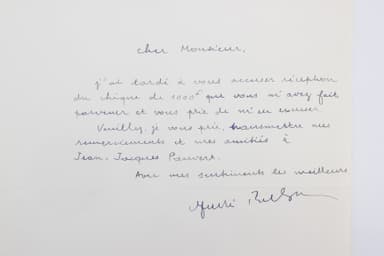 cher Monsieur,
j'ai tardé à vous accuser réception
du chèque de 1000 F que vous m'avez fait
parvenir et vous prie de m'en excuser
Veuillez, je vous prie, transmettre mes
remerciements et mes amitiés à
Jean-Jacques Pauvert.
Avec mes sentiments les meilleurs